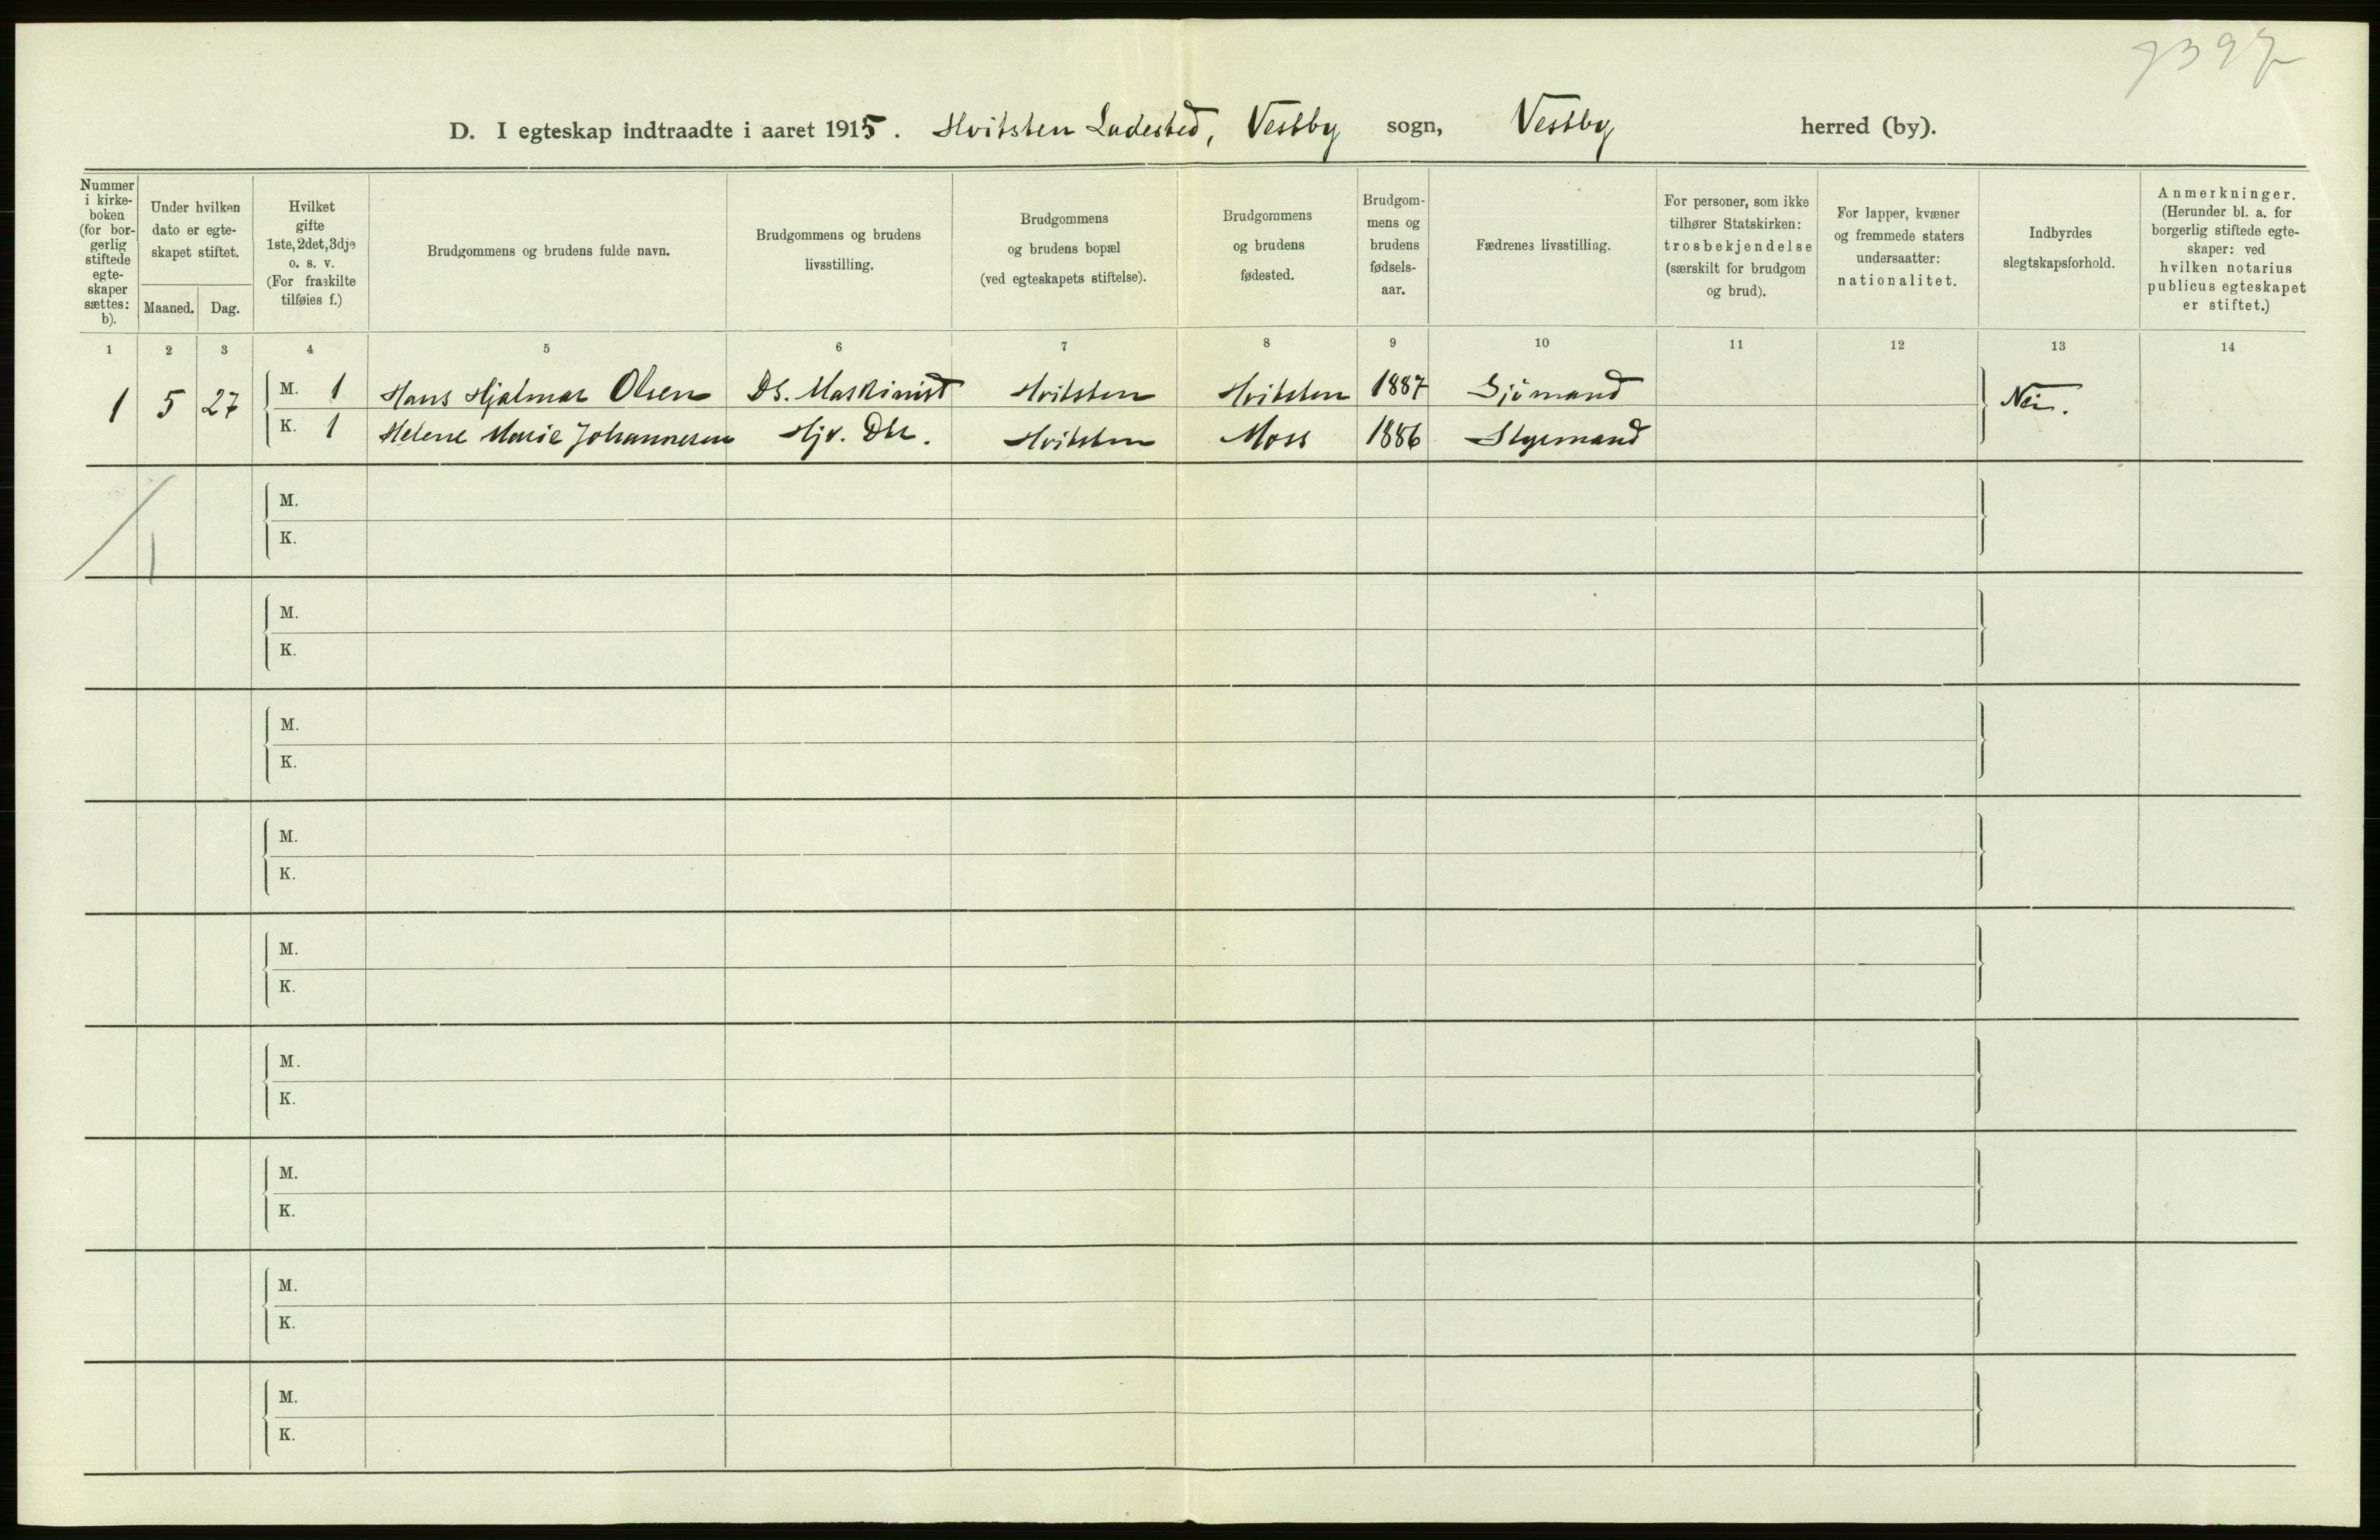 7397
D. I egteskap indtraadte i aaret 1915. Hvitsten Ladested, Vestby sogn, Vestby herred (by).
Nummer i kirke-boken (for bor-gerlig stiftede egte-skaper sættes: b).
Under hvilken dato er egte-skapet stiftet.
Maaned. Dag.
Hvilket gifte 1ste, 2det, 3dje o. s. v. (For fraskilte tilføies f.)
Brudgommens og brudens fulde navn.
Brudgommens og brudens livsstilling.
Brudgommens og brudens bopæl (ved egteskapets stiftelse).
Brudgommens og brudens fødested.
Brudgom-mens og brudens fødsels-aar.
Fædrenes livsstilling.
For personer, som ikke tilhører Statskirken: trosbekjendelse (særskilt for brudgom og brud).
For lapper, kvæner og fremmede staters undersaatter: nationalitet.
Indbyrdes slegtskapsforhold.
Anmerkninger. (Herunder bl. a. for borgerlig stiftede egte-skaper: ved hvilken notarius publicus egteskapet er stiftet.)
1 2 3 4 5 6 7 8 9 10 11 12 13 14
1 5 27 M. 1 Hans Hjalmar Olsen DS. Maskinist Hvitsten Hvitsten 1887 Sjömand Nei.
K. 1 Helene Marie Johannesen Hjv. Dtr. Hvitsten Moss 1886 Styrmand
M.
K.
1
M.
K.
M.
K.
M.
K.
M.
K.
M.
K.
M.
K.
M.
K.
M.
K.